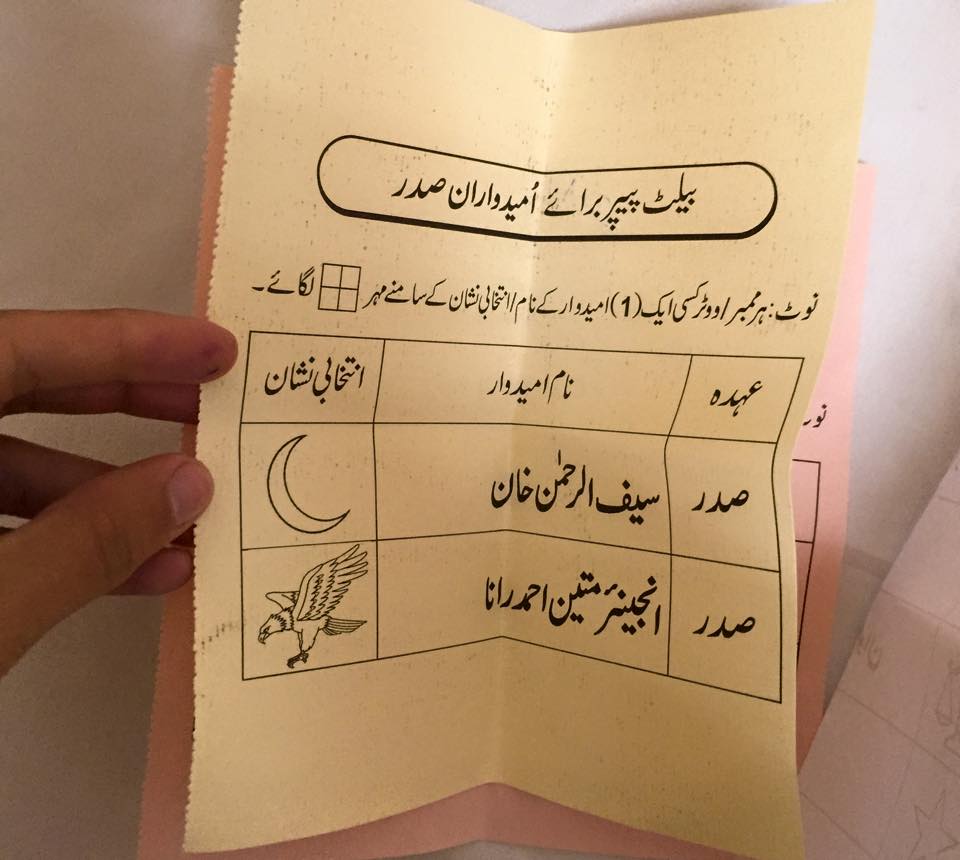 بیلٹ پیپر برائے اُمیدواران صدر
نوٹ: ہر ممبر/ووٹر کسی ایک (1) امیدوار کے نام/انتخابی نشان کے سامنے مہر لگائے۔
عہدہ نام امیدوار انتخابی نشان
صدر سیف الرحمٰن خان
صدر انجینئر متین احمد رانا